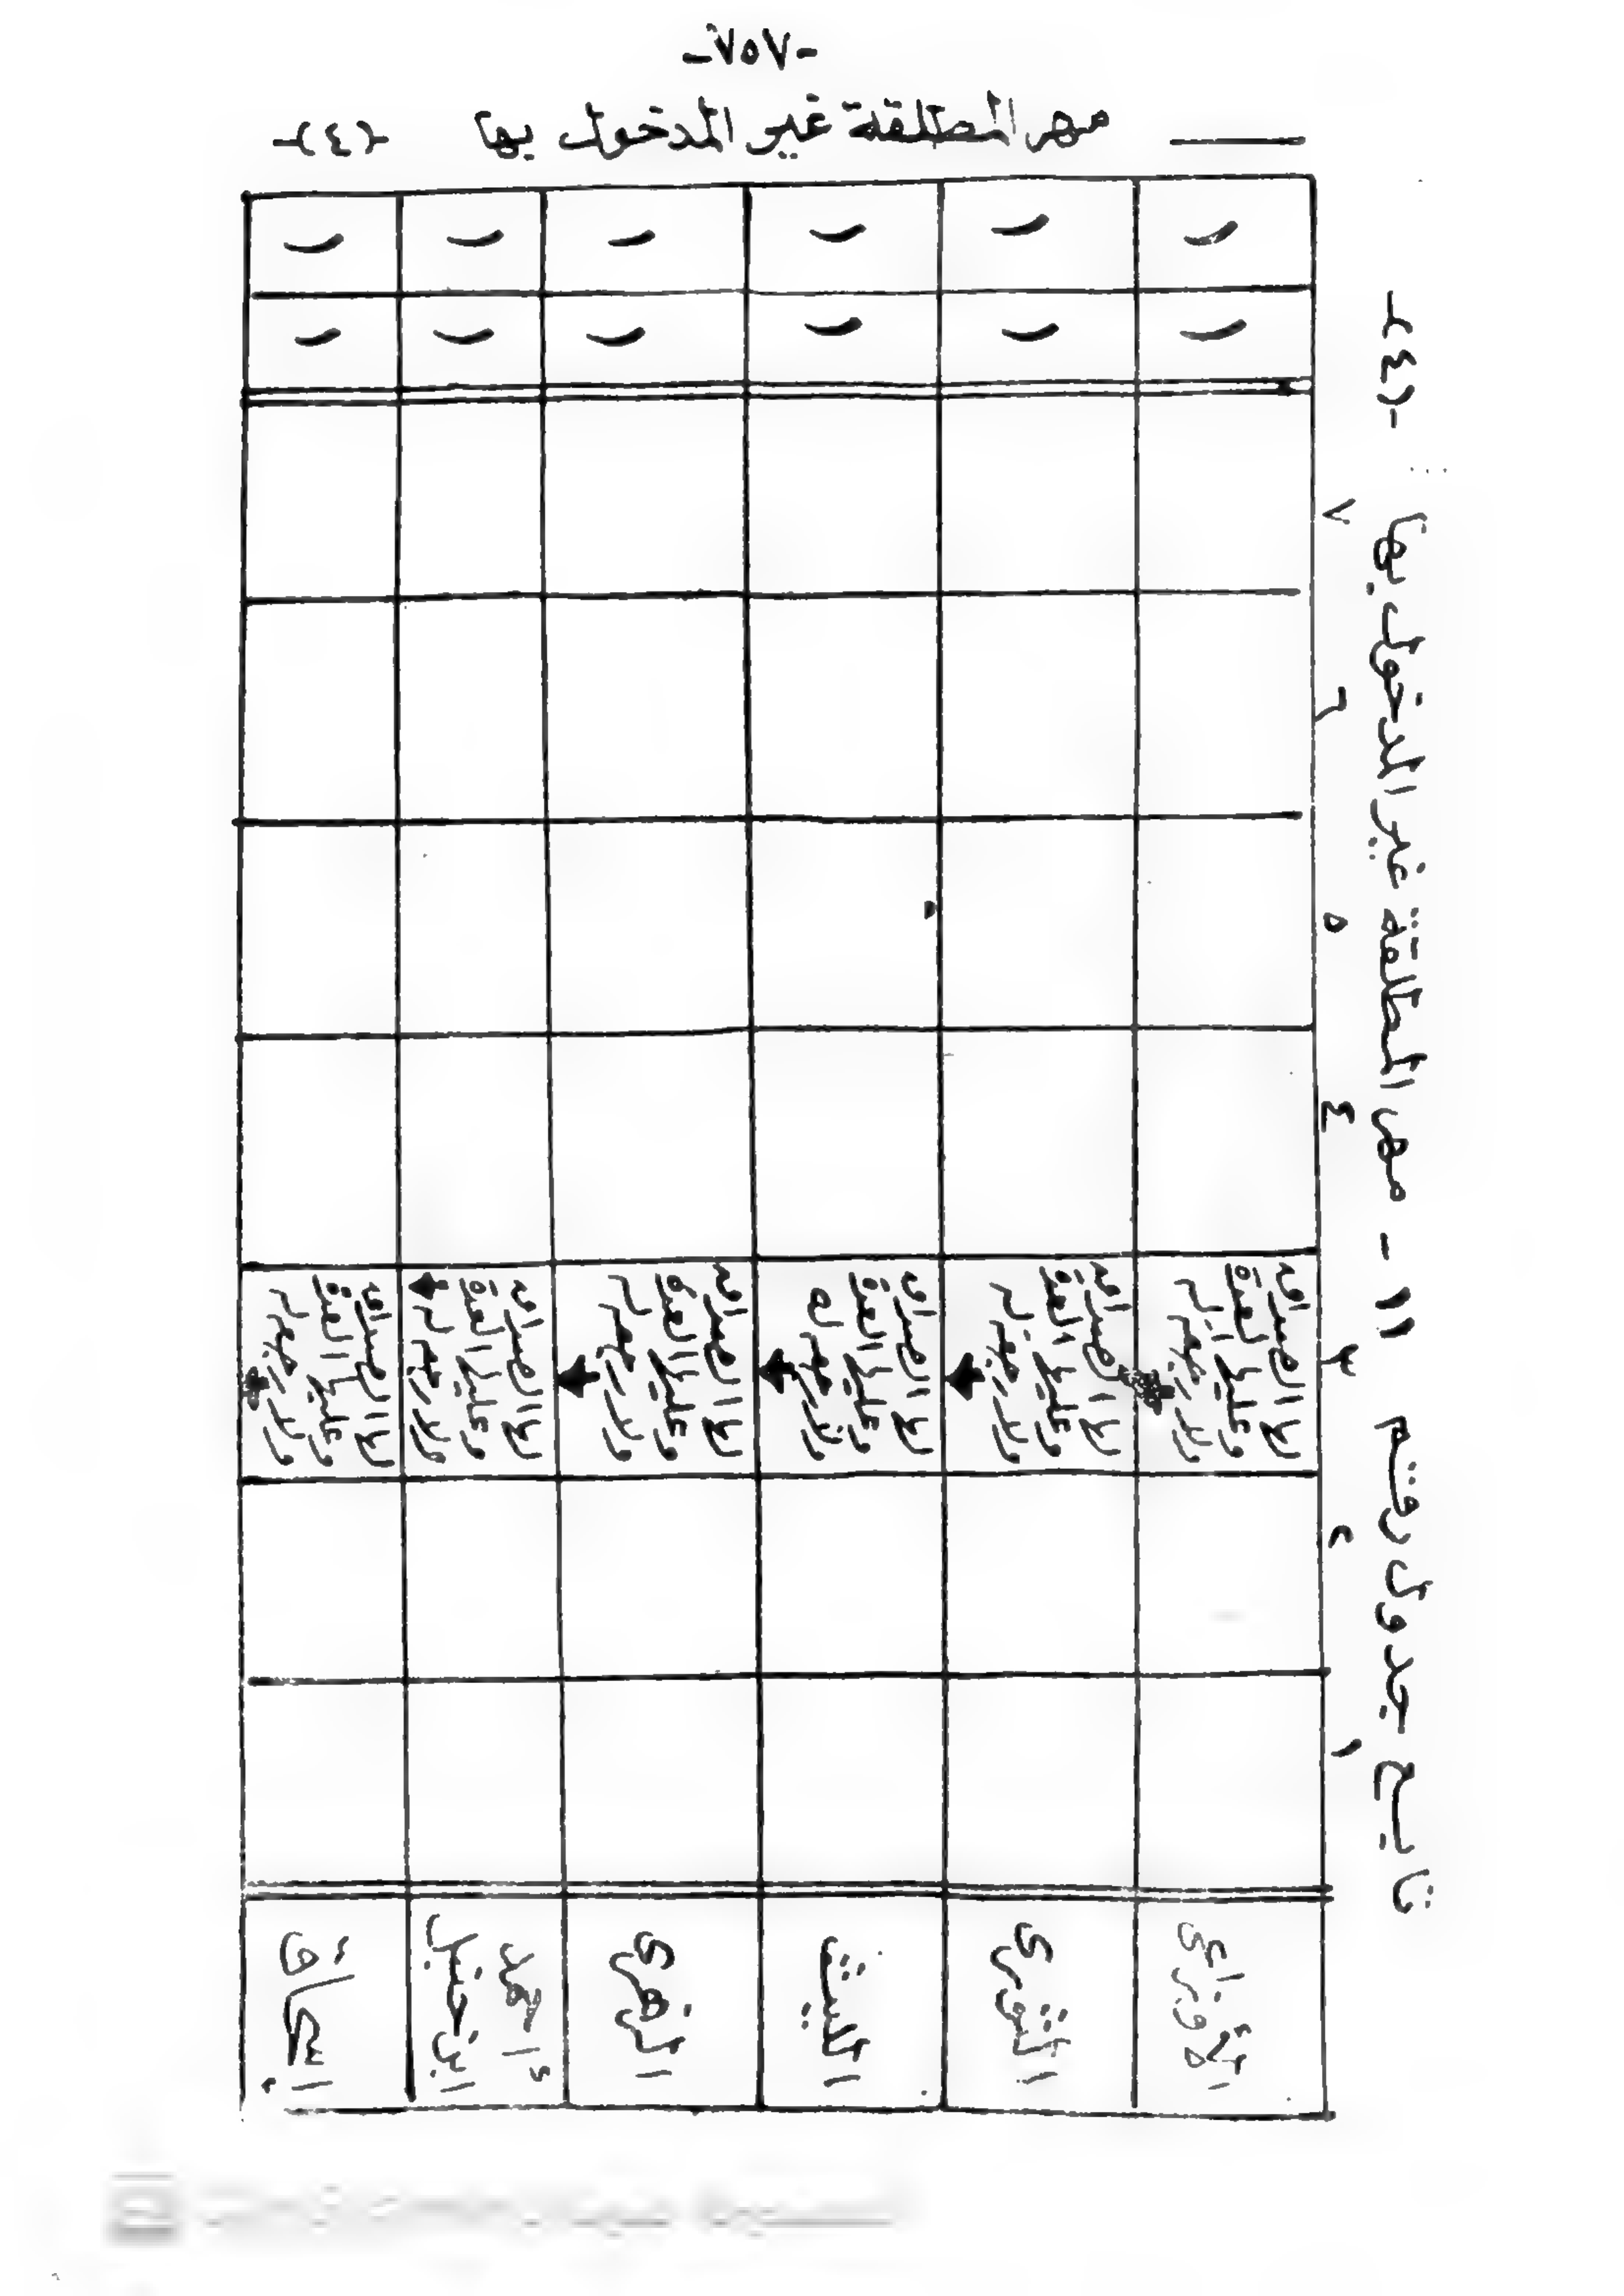 -٧٥٧-
مهر المطلقة غير المدخول بها -(٤)-
تابع جدول رقم ١١ - مهر المطلقة غير المدخول بها -(٤)-
١ ٢ ٣ ٤ ٥ ٦ ٧
الأوزاعي
لها الصداق
وعليها العدة
ولا رجعة له
الثوري
لها الصداق
وعليها العدة
ولا رجعة له
الليث
لها الصداق
وعليها العدة
ولا رجعة له
الزهري
لها الصداق
وعليها العدة
ولا رجعة له
أحمد
ابن حنبل
لها الصداق
وعليها العدة
ولا رجعة له
إسحاق
لها الصداق
وعليها العدة
ولا رجعة له